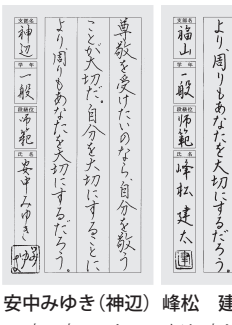 尊敬を受けたいのなら、自分を敬う
ことが大切だ。自分を大切にすることに
より、周りもあなたを大切にするだろう。
支部名 神辺 学年 一般 段級位 師範 氏名 安中みゆき
より、周りもあなたを大切にするだろう。
支部名 福山 学年 一般 段級位 師範 氏名 峰松建太
安中みゆき(神辺)
峰松 建